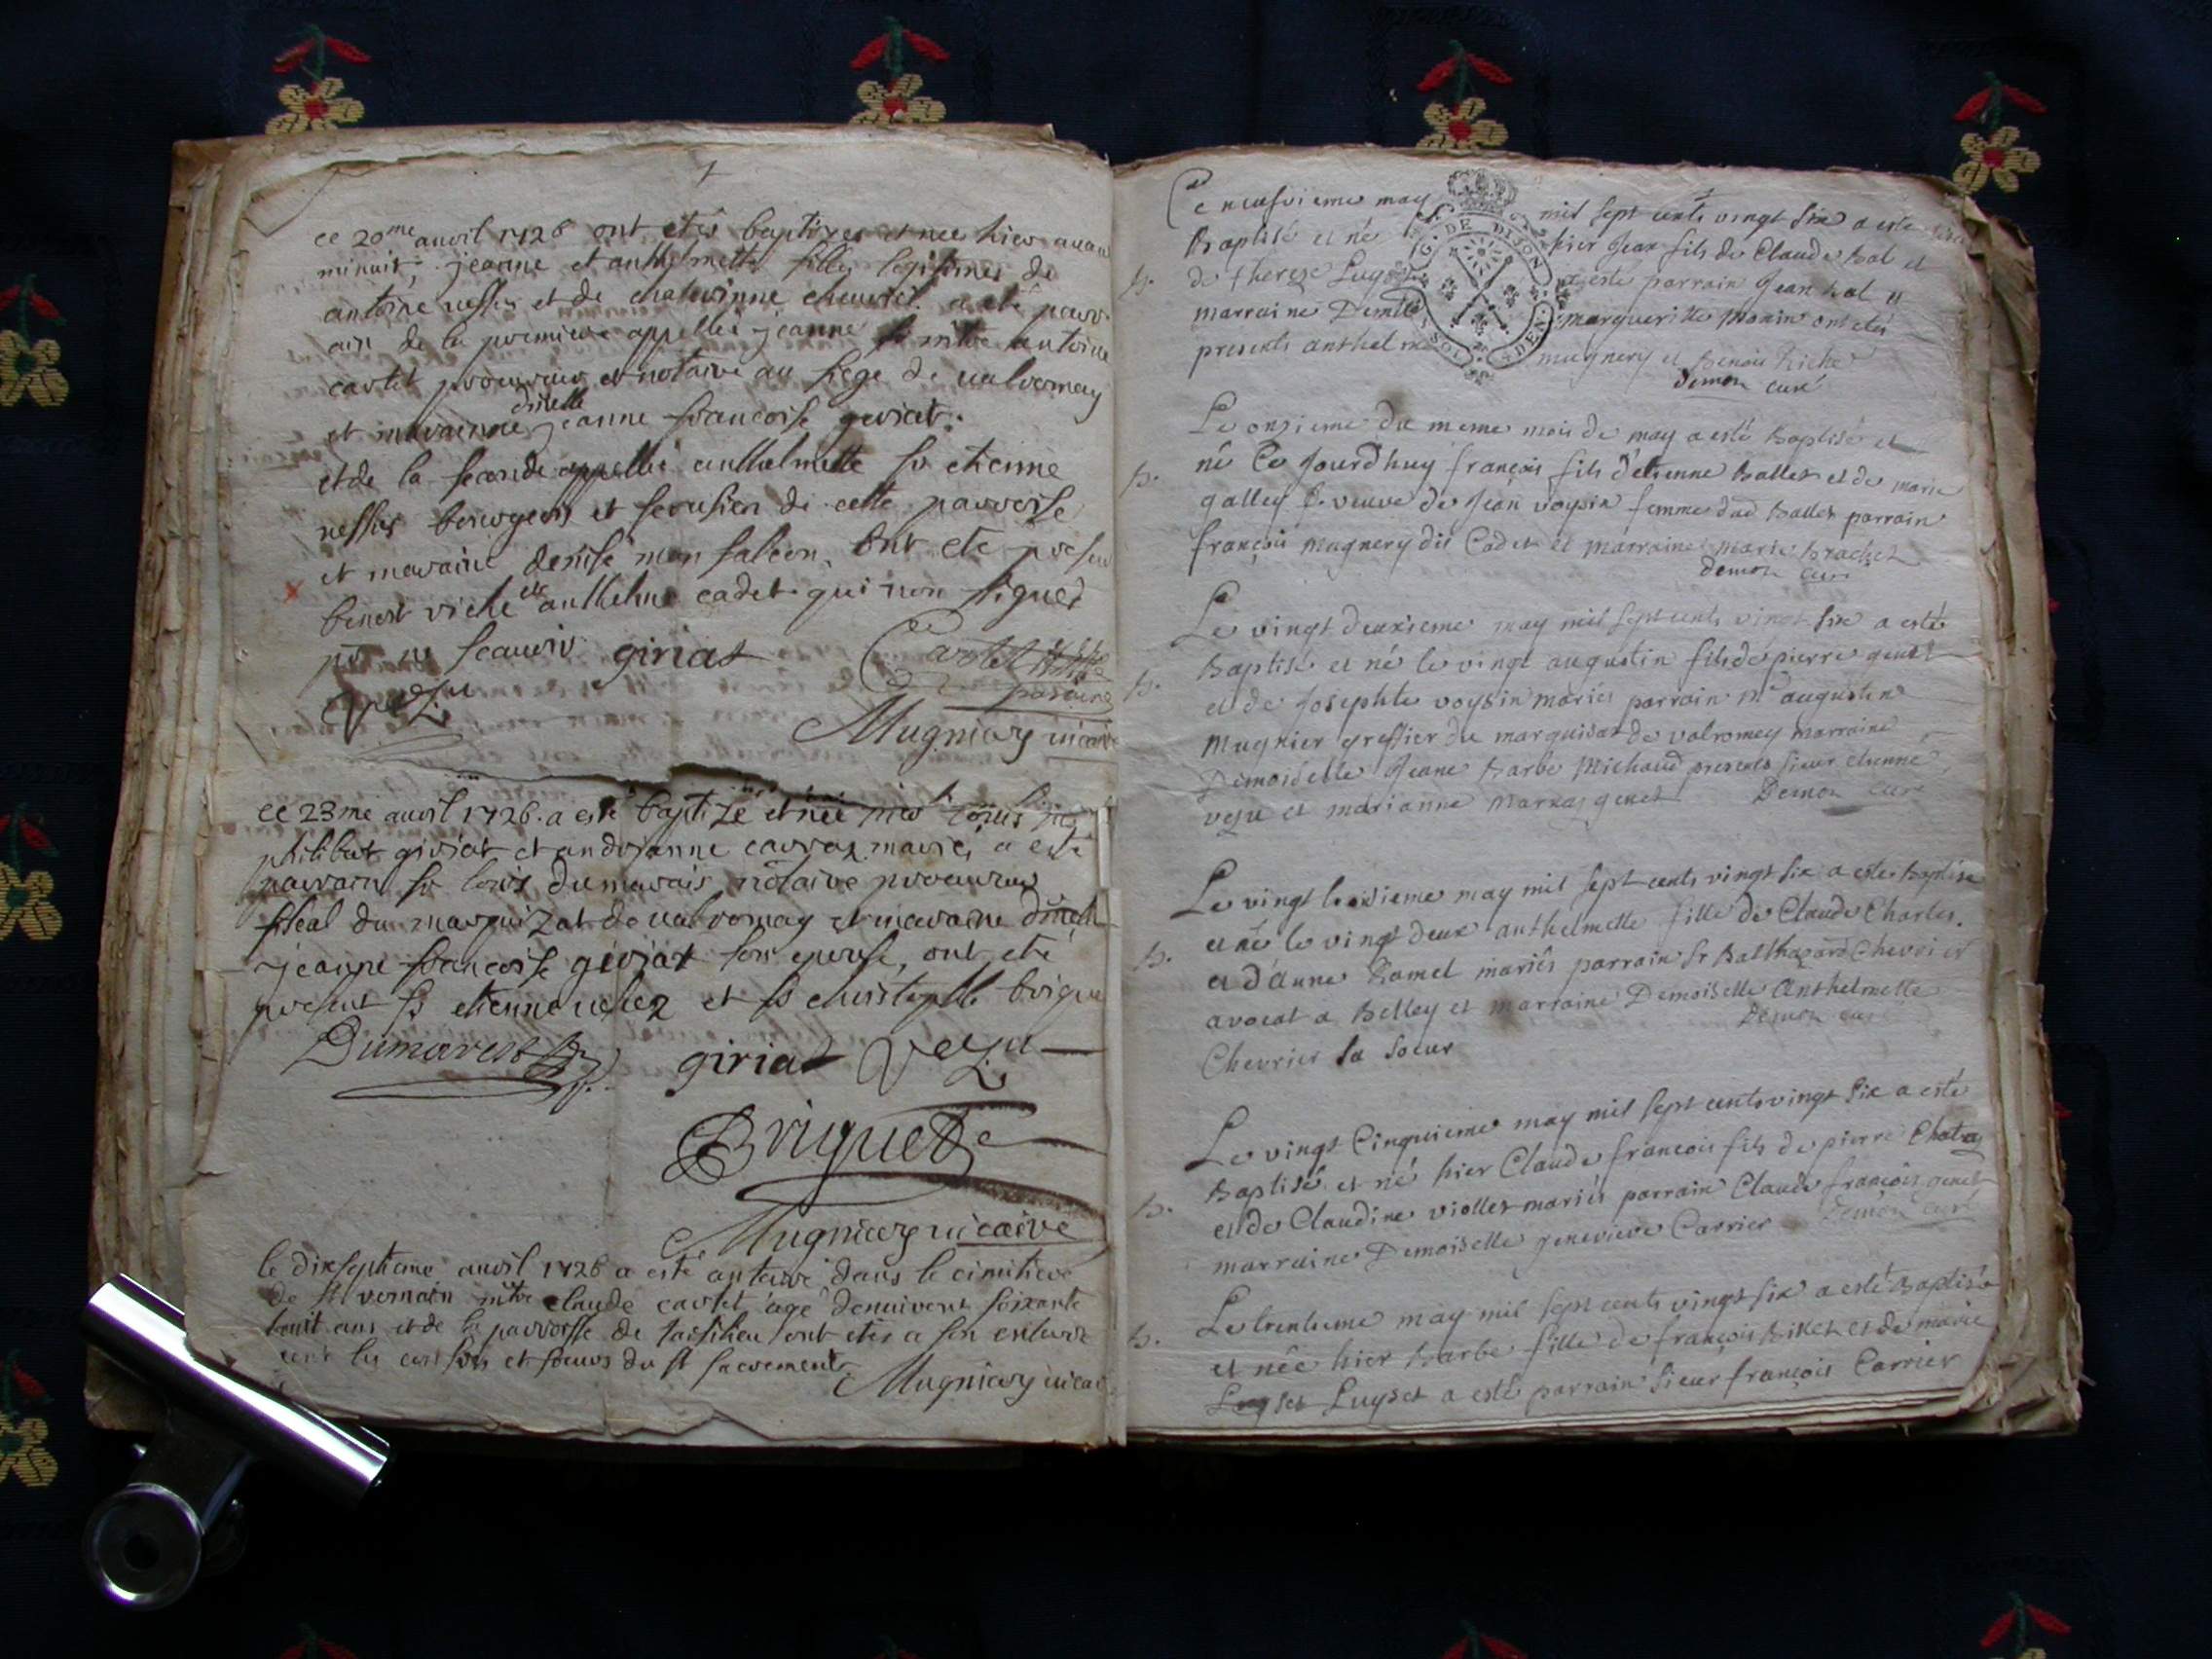 ce 20me auvil 1726 ont etes baptizes et nee hier avan
minuit, jeanne et anthelmette filles legitimes de
antoine et de a eté parr
ain de la premiere appellée jeanne sr mtre antoine
cartet procureur et notaire au siege de valromey
et maraine dmelle jeanne francoise giriat.
et de la seconde appellée anthelmette sr etienne
bourgeois et de cette parroisse
et maraine denise mon falcon. ont ete presen
benoit riche et anthelme cadet qui non signer
pr ne scauoir giriat Cartet
Veçu parain
Mugniery vicaire
ce 23me auvil 1726. a esté baptizé et née hier
philibert giriat et andrianne carraz mariés a esté
parrain sr louis dumarais notaire procureur
fiscal du marquizat de valromay et maraine dmelle
jeanne francoise giriat son epouse, ont eté
present sr etienne veçez et sr christophle brigue
Dumarest giriat Veçu
Briguet
Mugniery vicaire
le dixseptieme auvil 1726 a esté anterré dans le cimitiere
de st romain mtre claude cartet agé denuiron soixante
huit ans et de la parroisse de ont etés a son enterre
ment les confrers et soeurs du st sacrement
Mugniery vicai
Ce neufvieme may mil sept cents vingt six a este
Baptisé et né hier Jean fils de Claude bal et
b. de thereze Luyset a este parrain Jean bal et
marraine Demlle margueritte Monin ont etés
presents anthelme mugnery et benoit Riche
demon curé
Le onzieme du meme mois de may a esté baptisé et
b. né Ce Jourdhuy françois fils d'etienne Ballet et de marie
galley veuve de Jean voysin femme dud ballet parrain
françois mugnery dit Cadet et marraine marie brachet
demon curé
Le vingt deuxieme may mil sept cents vingt six a esté
b. Baptisé et né le vingt augustin fils de pierre genet
et de Josephte voysin mariés parrain Mr augustin
Mugnier greffier du marquisat de valromey marraine
Demoiselle Jeane barbe Michaud presents sieur etienne
veçu et marianne marraz genet Demon Curé
Le vingt troisieme may mil sept cents vingt six a estée baptisé
b. et né le vingt deux anthelmette fille de Claude Charles
et d'anne Ramel mariés parrain Sr Balthazard Chevrier
avocat a Belley et marraine Demoiselle Anthelmette
Chevrier sa soeur Demon curé
Le vingt Cinquieme may mil sept cents vingt six a esté
b. Baptisé et né hier Claude francois fils de pierre
et de Claudine viollet mariés parrain Claude françois genet
marraine Demoiselle genevieve Carrier Demon Curé
Le trentieme may mil sept cents vingt six a esté baptisée
b. et née hier barbe fille de françois billet et de marie
Luyset Luyset a esté parrain sieur françois Carrier
G. DE DIJON
SOL
DEN.